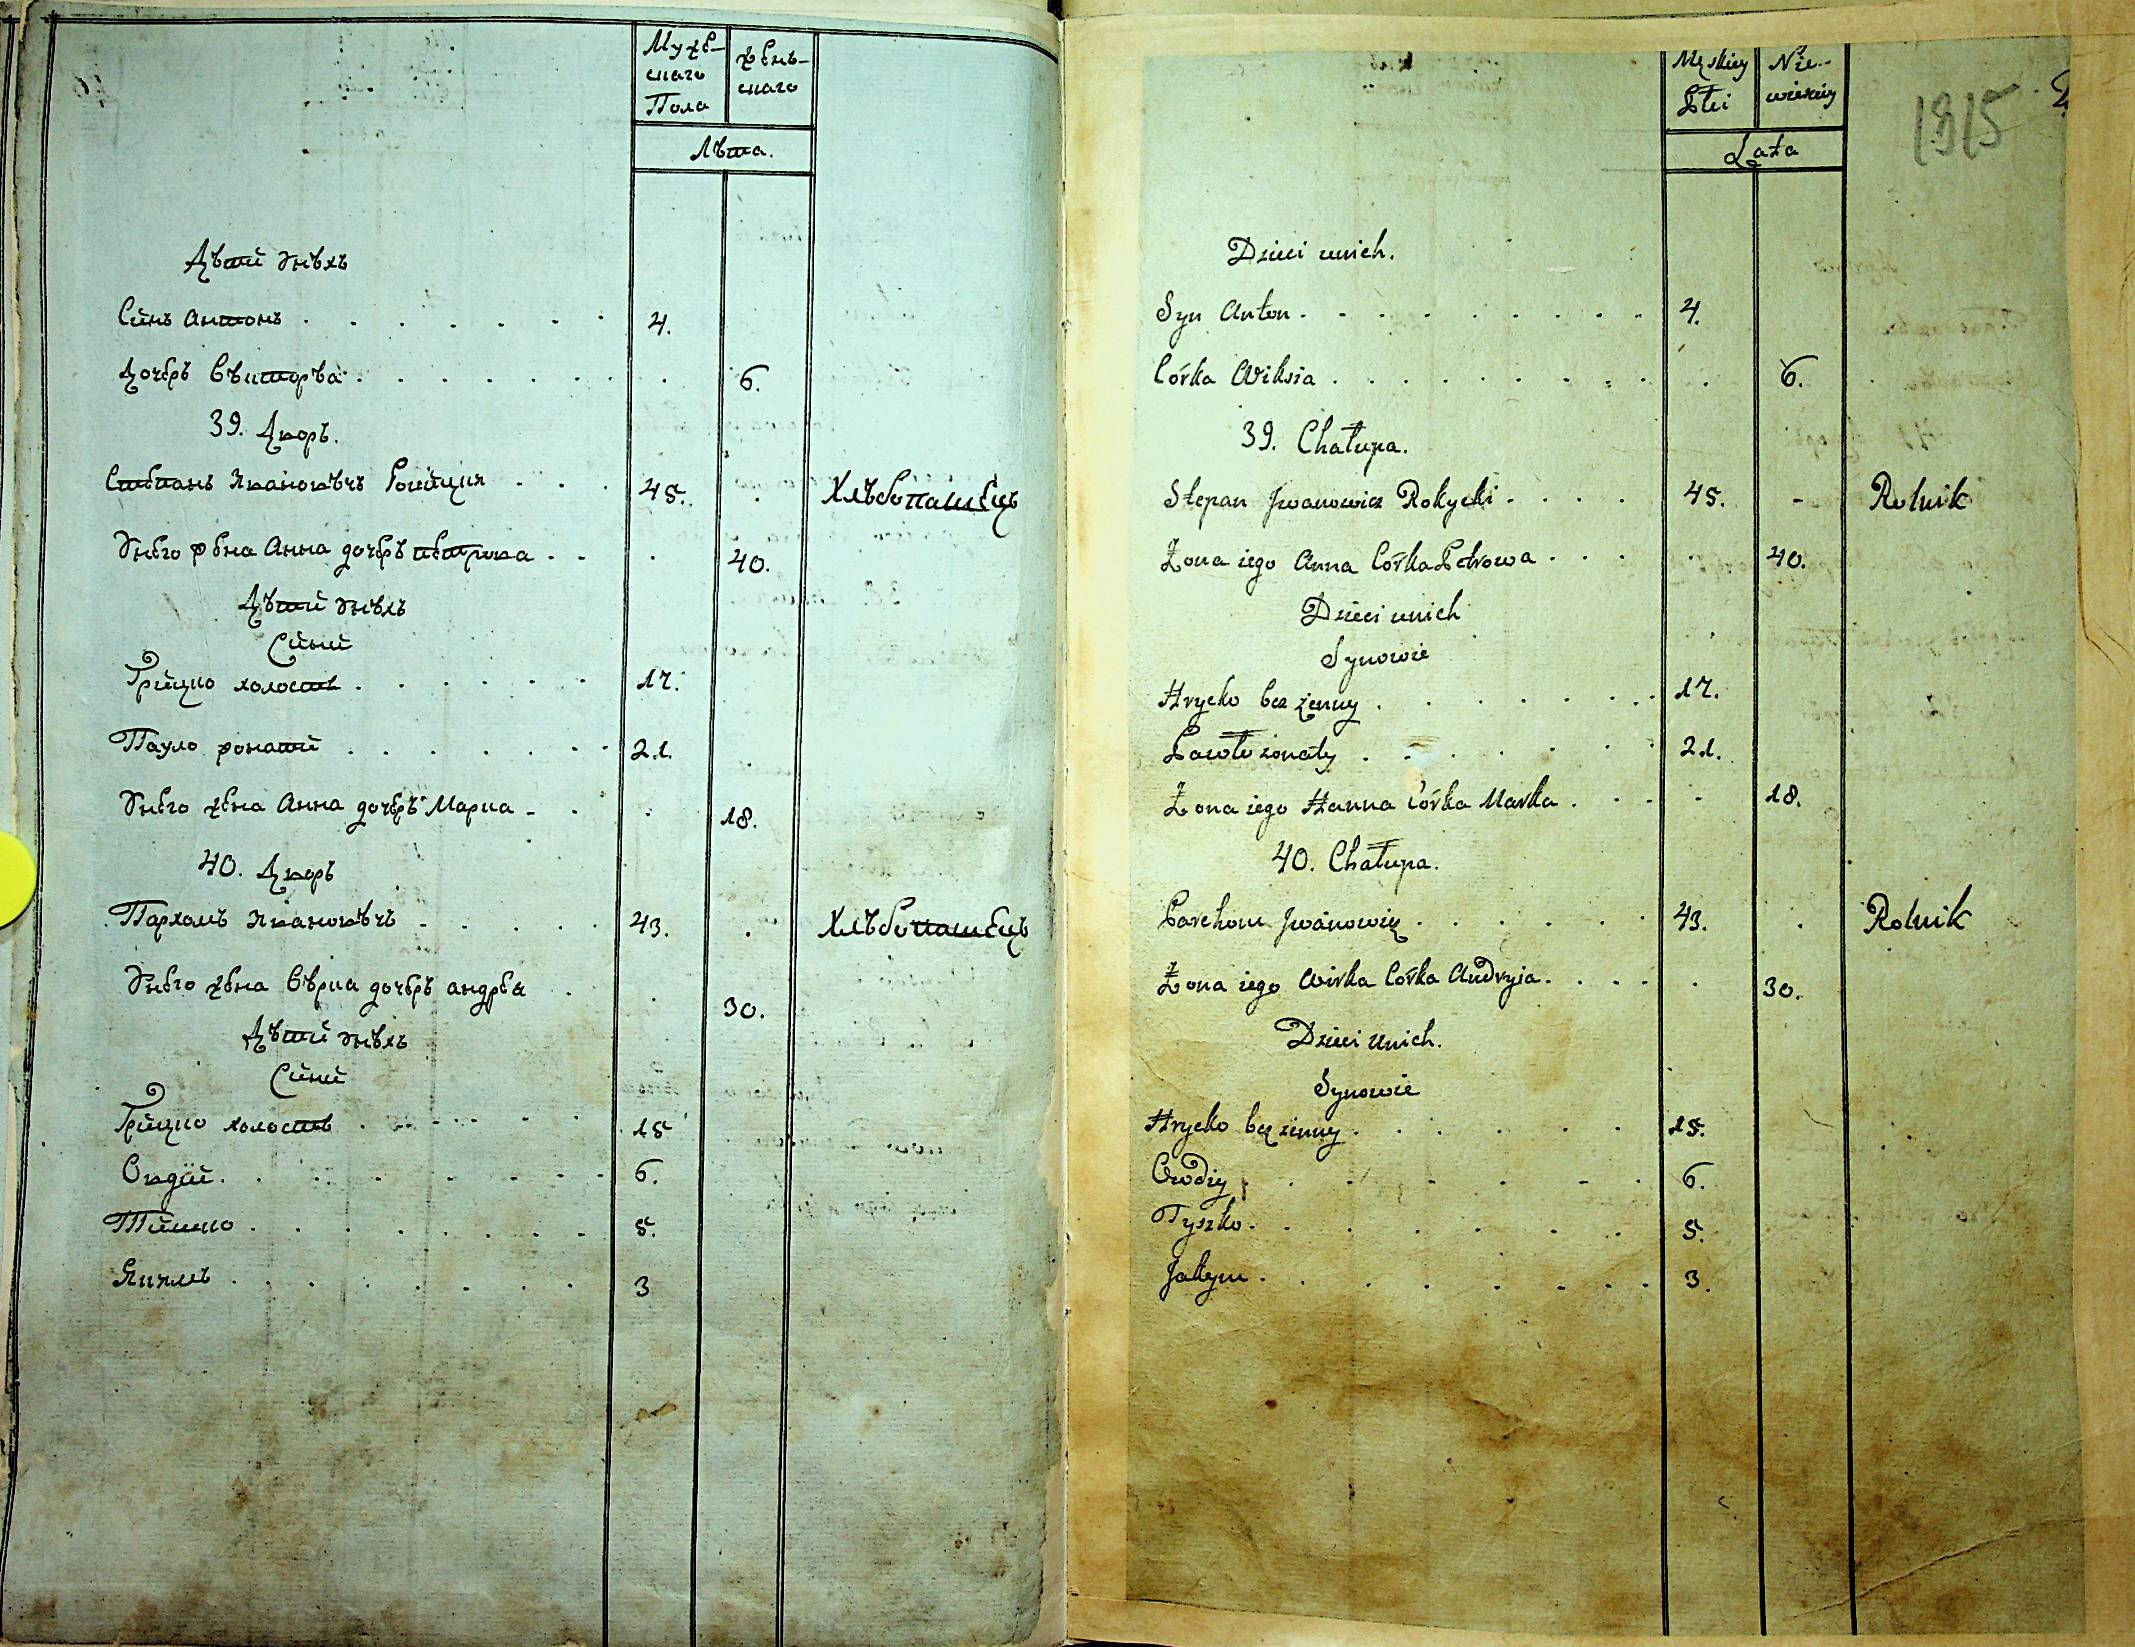 Муже-
скаго
Пола
жень-
скаго
Лѣта.
Дѣтй Унѣхъ
Сйнъ Антонъ . . . . . . . 4.
Дочерь Вѣкторѣа . . . . . . . 6.
39. Дворъ.
Степанъ Якановѣчъ Рокйцкя . . . 45. . Хлѣбопашецъ
Унего жена Анна дочеръ петрова . . . 40.
Дѣтй Унѣхъ
Сйнй
Грйцко холостъ . . . . . . 17.
Пауло жонатй . . . . . . . 21.
Унего жена Анна дочеръ Марка - . . 18.
40. Дворъ
Пархомъ Ивановѣчъ . . . . . 43. . Хлѣбопашецъ
Унего жена Вѣрка дочеръ андрея . . 30.
Дѣтй Унѣхъ
Сйнй
Грйцко холостъ . . . . . . 15
Овдїй . . . . . . . 6.
Тйшко . . . . . . . . 5.
Якимъ . . . . . . . 3
Męskiey
Płci
Nie-
wieściey
Lata
1915
Dzieci unich.
Syn Anton . . . . . . . . . . 4.
Córka Wiksia . . . . . . . . . . 6.
39. Chałupa.
Stepan Jwanowicz Rokycki . . . . 45. - Rolnik
Żona iego Anna Córka Petrowa . . . . 40.
Dzieci unich
Synowie
Hrycko bez żenny . . . . . . . 17.
Pawło żonaty . . . . . . 21.
Żona iego Hanna Córka Marka . . . - 18.
40. Chałupa.
Parchom Jwanowicz . . . . . . 43. . Rolnik
Żona iego Wirka Córka Andryia . . . . . 30.
Dzieci Unich.
Synowie
Hrycko bez żenny . . . . . . 15.
Owdiy . . . - - - . 6.
Tyszko . . . . . . . 5.
Jakym . . . . . . . . 3.